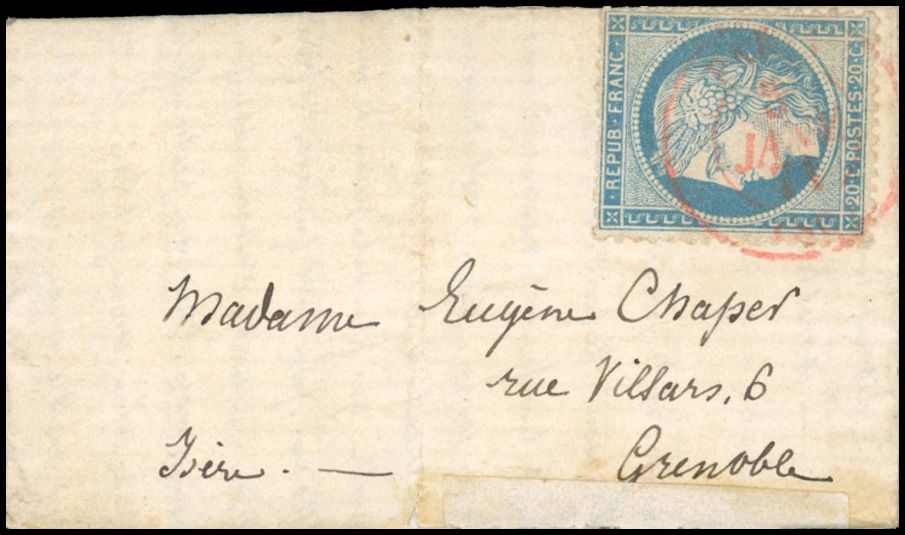 REPUB. FRANC.
20.C. POSTES. 20.C.
JAN
Madame Eugène Chaper
rue Villars, 6
Isère. — Grenoble